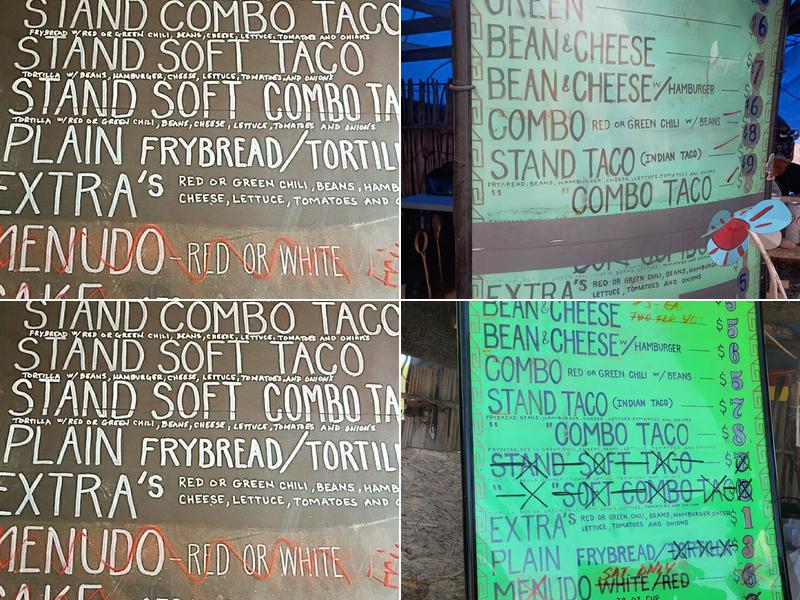 STAND COMBO TACO
FRYBREAD W/RED OR GREEN CHILI, BEANS, CHEESE, LETTUCE, TOMATOES AND ONIONS
STAND SOFT TACO
TORTILLA W/ BEANS, HAMBURGER, CHEESE, LETTUCE, TOMATOES, AND ONION'S
STAND SOFT COMBO TA
TORTILLA W/RED OR GREEN CHILI, BEANS, CHEESE, LETTUCE, TOMATOES AND ONION'S
PLAIN FRYBREAD/TORTIL
EXTRA'S RED OR GREEN CHILI, BEANS, HAMB
CHEESE, LETTUCE, TOMATOES AND ON
MENUDO-RED OR WHITE
GREEN 6
BEAN & CHEESE 7
BEAN & CHEESE W/HAMBURGER 6
COMBO RED OR GREEN CHILI W/ BEANS 8
STAND TACO (INDIAN TACO) 9
FRYBREAD, BEANS, HAMBURGER, CHEESE, LETTUCE, TOMATOES AND ONIONS
" " COMBO TACO
SOFT COMBO TACO
EXTRA'S RED OR GREEN CHILI, BEANS, HAMBURGER,
LETTUCE, TOMATOES AND ONIONS 5
STAND COMBO TACO
FRYBREAD W/RED OR GREEN CHILI, BEANS, CHEESE, LETTUCE, TOMATOES AND ONIONS
STAND SOFT TACO
TORTILLA W/ BEANS, HAMBURGER, CHEESE, LETTUCE, TOMATOES, AND ONION'S
STAND SOFT COMBO TA
TORTILLA W/RED OR GREEN CHILI, BEANS, CHEESE, LETTUCE, TOMATOES AND ONION'S
PLAIN FRYBREAD/TORTIL
EXTRA'S RED OR GREEN CHILI, BEANS, HAMB
CHEESE, LETTUCE, TOMATOES AND O
MENUDO-RED OR WHITE
BEAN & CHEESE TWO FOR $ 5
BEAN & CHEESE W/HAMBURGER $ 6
COMBO RED OR GREEN CHILI W/ BEANS $ 5
STAND TACO (INDIAN TACO) $ 7
FRYBREAD, BEANS, HAMBURGER, CHEESE, LETTUCE, TOMATOES AND ONIONS
" " COMBO TACO $ 8
STAND SOFT TACO $ 7
" SOFT COMBO TACO
EXTRA'S RED OR GREEN CHILI, BEANS, HAMBURGER, CHEESE
LETTUCE, TOMATOES AND ONIONS $ 1
PLAIN FRYBREAD/ 3
SAT. ONLY
MENUDO WHITE/RED